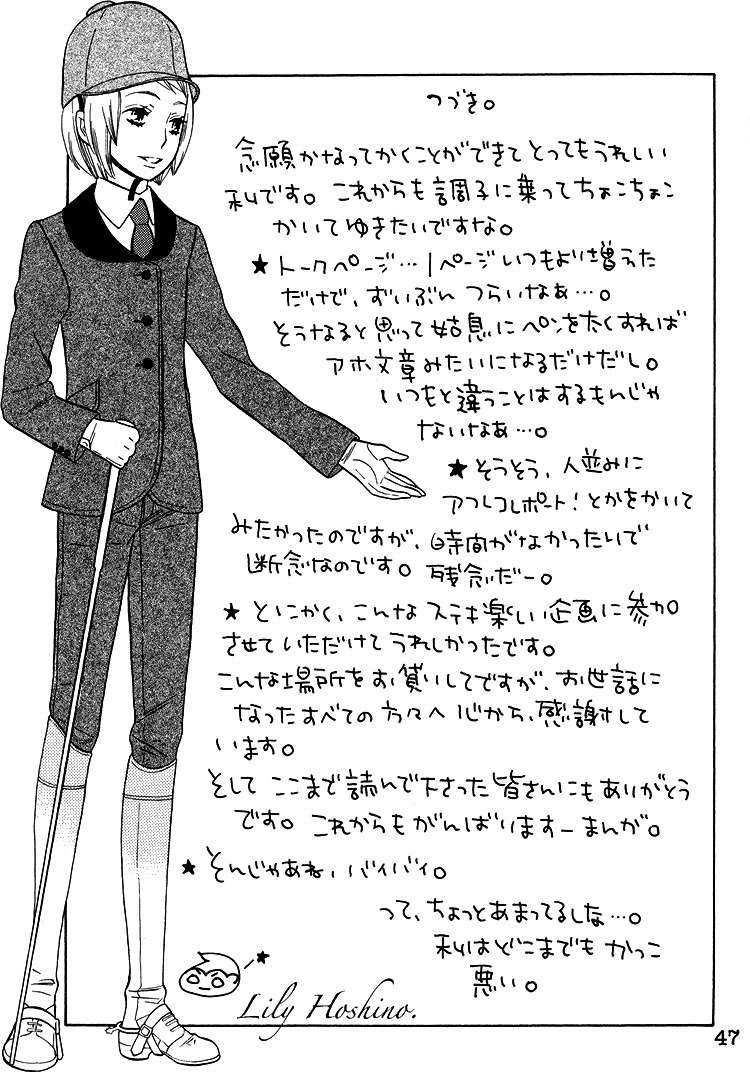 つづき。
念願かなってかくことができてとってもうれしい
私です。これからも調子に乗ってちょこちょこ
かいてゆきたいですな。
★トークページ…1ページいつもより増えた
だけで、ずいぶんつらいなぁ…。
そうなると思って姑息にペンを太くすれば
アホ文章みたいになるだけだし。
いつもと違うことはするもんじゃ
ないなぁ…。
★そうそう、人並みに
アフレコレポート!とかをかいて
みたかったのですが、時間がなかったいで
断念なのです。残念だー。
★とにかく、こんなステキ楽しい企画に参加
させていただけてうれしかったです。
こんな場所をお借りしてですが、お世話に
なったすべての方々へ心から、感謝して
います。
そしてここまで読んで下さった皆さんにもありがとう
です。これからもがんばりますーまんが。
★そんじゃあね、バイバイ。
って、ちょっとあまってるしな…。
私はどこまでもかっこ
悪い。
Lily Hoshino.
47